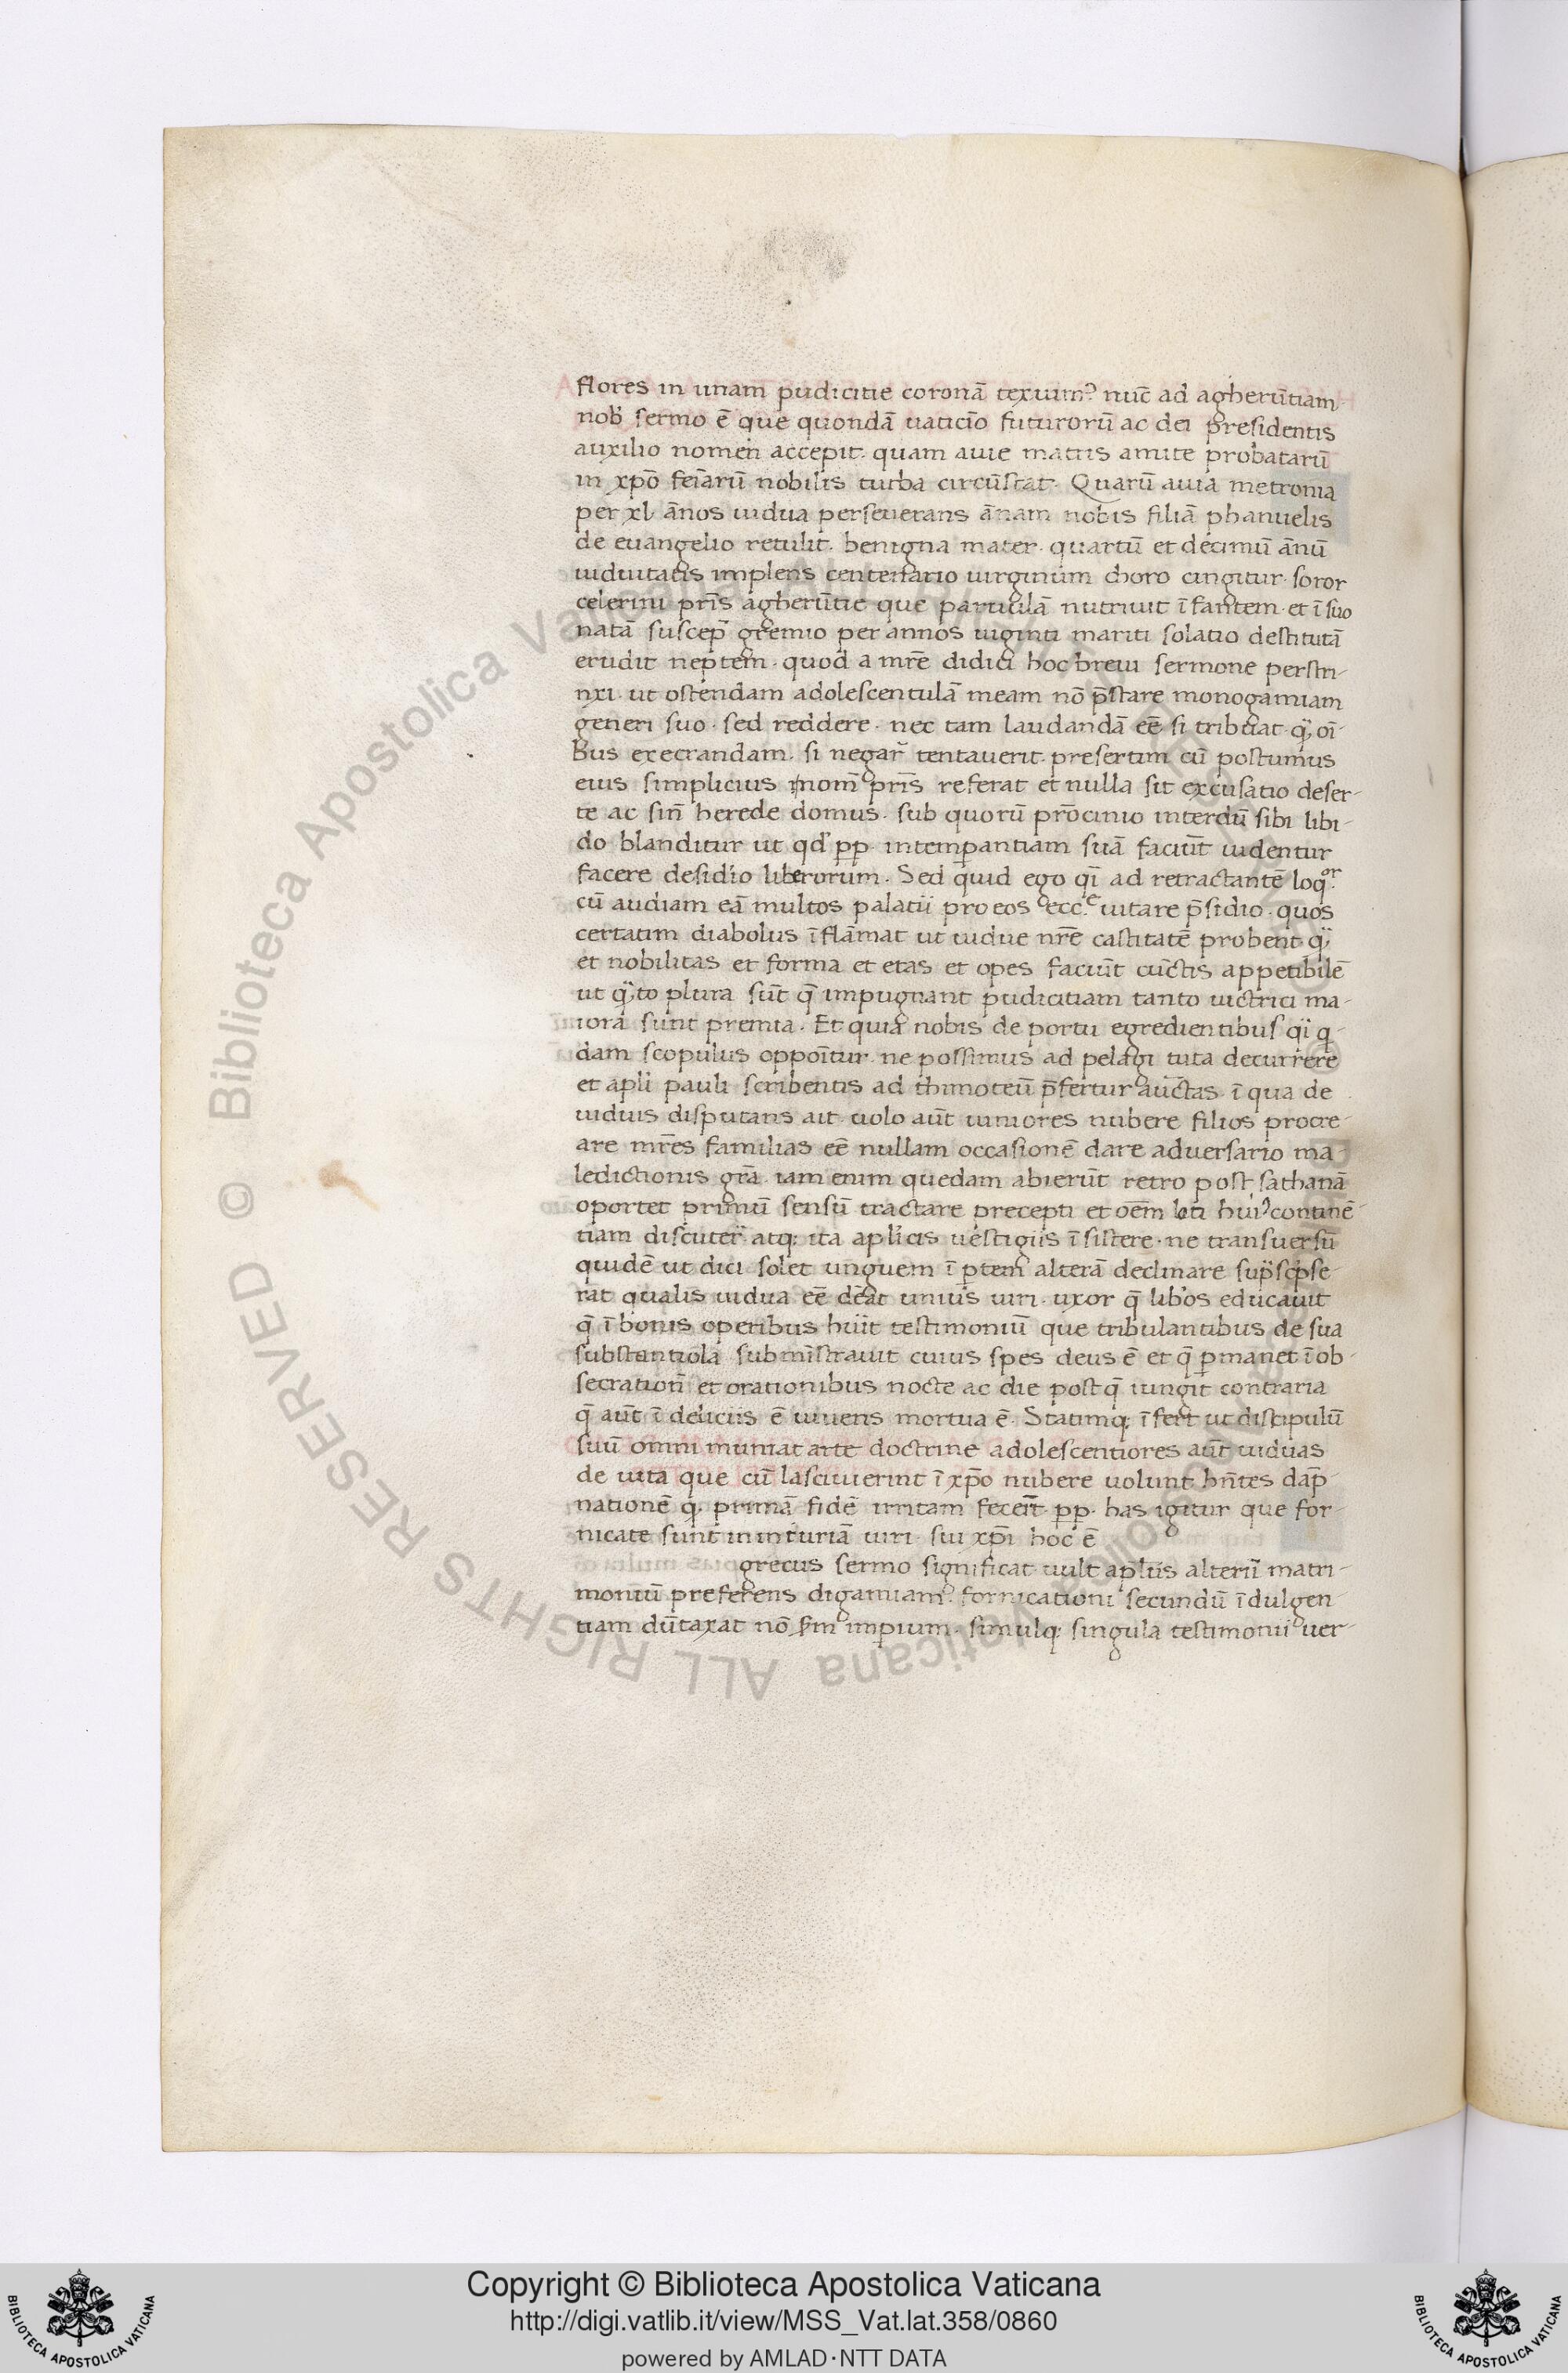 flores in unam pudicitie coronā texuim⁹ nūc ad agherūtiam
nob̄ sermo ē que quondā uaticīo futurorū ac dei presidentis
auxilio nomen accepit. quam auie matris amite probatarū
in xp̄o feīarū nobilis turba circūstat. Quarū auia metronia
per xl. ānos uidua perseuerans ānam nobis filiā phanuelis
de euangelio retulit. benigna mater. quartū et decimū ānū
uiduitatis implens centenario uirginum choro cingitur. soror
celerini pr̄is agherūtie que paruulā nutriuit īfantem. et ī suo
natā suscep̄ gremio per annos uiginti mariti solatio destitutā
erudit neptem. quod a mr̄e didici hoc breui sermone perstri-
nxi. ut ostendam adolescentulā meam nō p̄stare monogamiam
generi suo. sed reddere. nec tam laudandā eē si tribuat. q̄ oī-
bus execrandam. si negar̄ tentauerit. presertim cū postumus
eius simplicius nom̄ pr̄is referat et nulla sit excusatio deser-
te ac sin̄ herede domus. sub quorū pr̄ocinio interdū sibi libi-
do blanditur ut qd' pp. intemp̱antiam suā faciūt uidentur
facere desidio liberorum. Sed quid ego q̄i ad retractantē loq̄ʳ.
cū audiam eā multos palatii pro eos ecc.ᵉ uitare p̄sidio. quos
certatim diabolus īflāmat ut uidue nr̄e castitatē probent q̄
et nobilitas et forma et etas et opes faciūt cūctis appetibilē
ut q̄to plura sūt q̄ impugnant pudicitiam tanto uictrici ma-
iora sunt premia. Et quia nobis de portu egredientibus q̄i q-
dam scopulus oppoītur. ne possimus ad pelagi tuta decurrere
et apl̄i pauli scribentis ad thimoteū p̄fertur auc̄tas. ī qua de
uiduis disputans ait. uolo aūt iuniores nubere filios procre-
are mr̄es familias eē nullam occasionē dare aduersario ma-
ledictionis gr̄a. iam enim quedam abierūt retro post sathanā
oportet primū sensū tractare precepti et oēm loci hui⁹ continē-
tiam discuter̄ atq; ita aplīcis uestigiis īsistere. ne transuersū
quidē ut dici solet unguem ī p̱tem alterā declinare sup̄sc̄pse-
rat qualis uidua eē dēat unius uiri. uxor q̄ lib'os educauit
q̄ ī bonis operibus hūit testimoniū que tribulantibus de sua
substantiola submīstrauit cuius spes deus ē et q̄ p̱manet ī ob-
secration̄ et orationibus nocte ac die post q̄ iungit contraria
q̄ aūt ī deliciis ē uiuens mortua ē. Statimq; īfert ut discipulū
suū omni muniat arte doctrine adolescentiores aūt uiduas
de uita que cū lasciuierint ī xp̄o nubere uolunt hn̄tes dāp-
nationē q. primā fidē irritam feceīt. pp. has igitur que for-
nicate sunt in iniuriā uiri sui xp̄i hoc ē
grecus sermo significat uult apl̄us alteriū matri-
moniū preferens digamiam. fornicationi secundū īdulgen-
tiam dūtaxat nō sm̄ imp̱ium. simulq; singula testimonii uer-
© Biblioteca Apostolica Vaticana ALL RIGHTS RESERVED
Copyright © Biblioteca Apostolica Vaticana
http://digi.vatlib.it/view/MSS_Vat.lat.358/0860
powered by AMLAD·NTT DATA
BIBLIOTECA APOSTOLICA VATICANA
BIBLIOTECA APOSTOLICA VATICANA